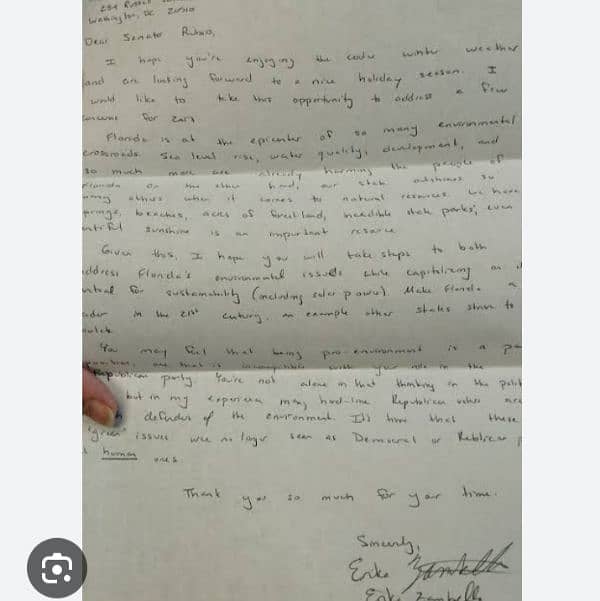 284 Russell
Washington, DC 20510
Dear Senator Rubio,
I hope you're enjoying the cooler winter weather
and are looking forward to a nice holiday season. I
would like to take this opportunity to address a few
concerns for 2017
Florida is at the epicenter of so many environmental
crossroads. Sea level rise, water quality, development, and
so much more are already harming the people of
Florida. On the other hand, our state outshines so
many others when it comes to natural resources. We have
springs, beaches, acres of forestland, incredible state parks, even
sunshine is an important resource
Given this, I hope you will take steps to both
address Florida's environmental issues while capitalizing on
for sustainability (including solar power). Make Florida a
in the 21st century, an example other states strive to
You may feel that being pro-environment is a
one that is incompatible with your role in the
Republican party. You're not alone in that thinking in the
but in my experience many hard-line Republican voters are
defenders of the environment. It's time that these
"green" issues were no longer seen as Democrat or Republican
human ones.
Thank you so much for your time.
Sincerely,
Erika Zambello
Erika Zambello